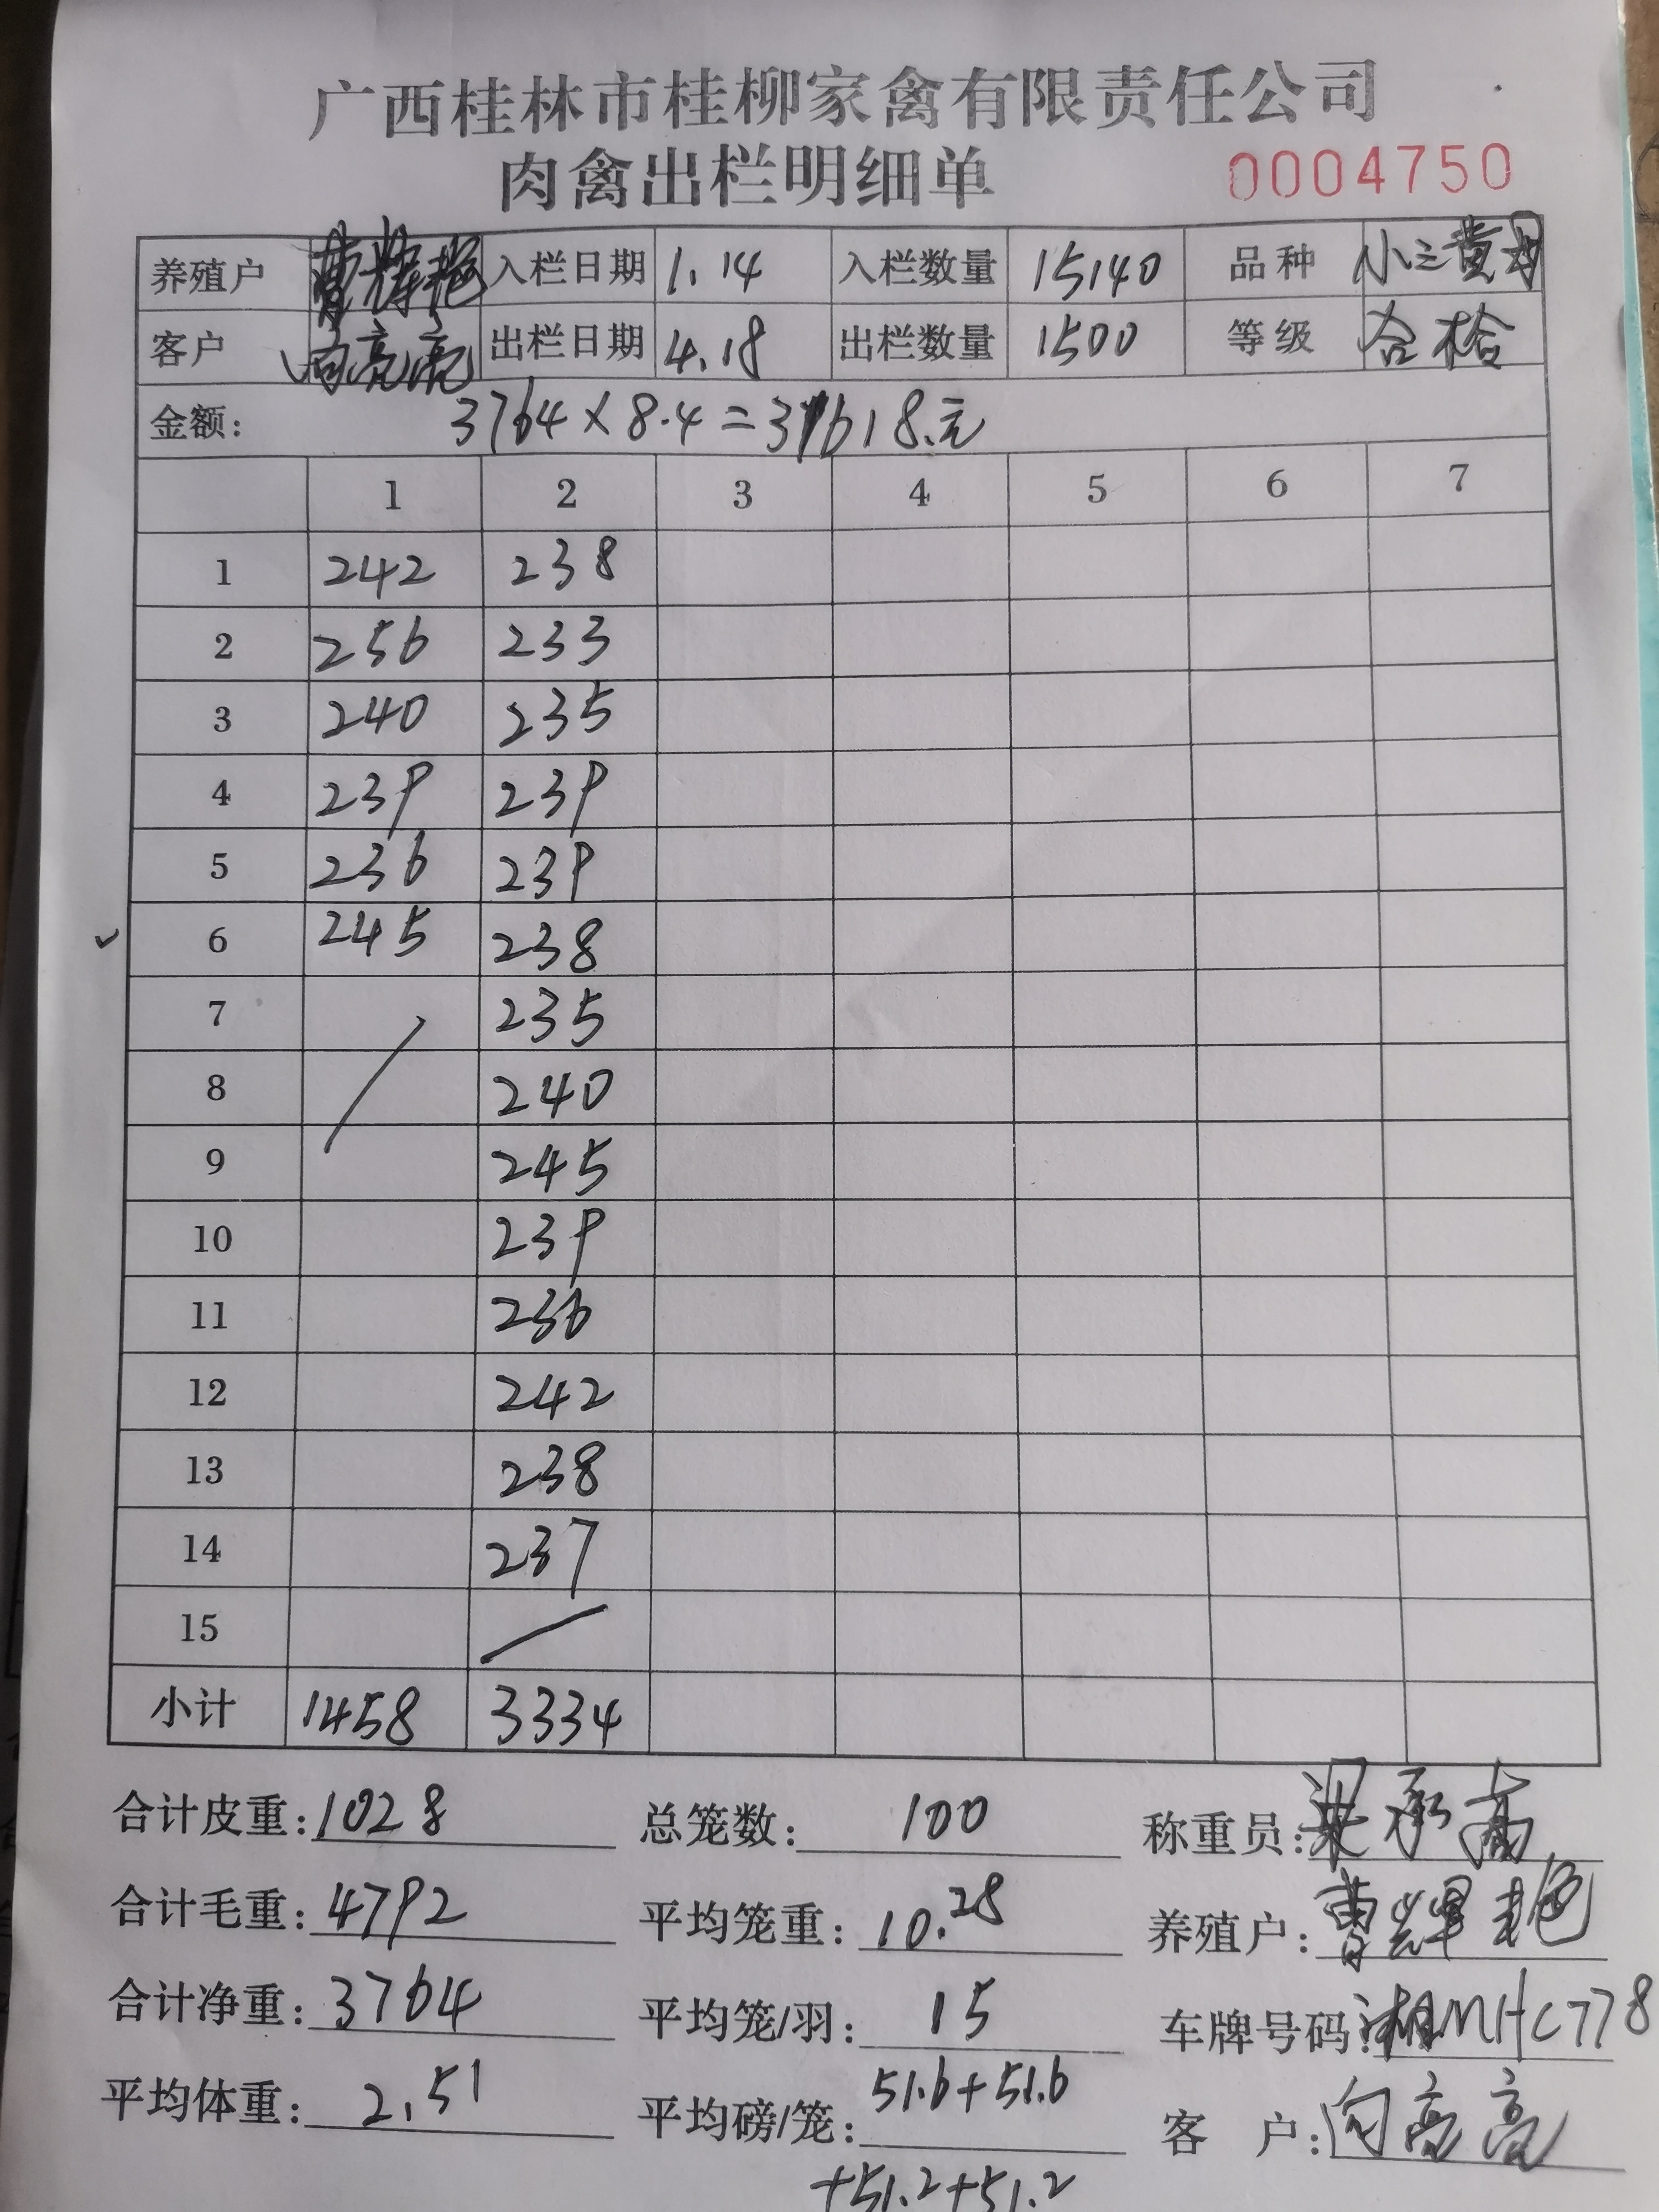 广西桂林市桂柳家禽有限责任公司
肉禽出栏明细单 0004750
养殖户 曹辉艳 入栏日期 1.14 入栏数量 15140 品种 小三黄母
客户 向亮亮 出栏日期 4.18 出栏数量 1500 等级 合格
金额: 3764×8.4=31618.元
1 2 3 4 5 6 7
1 242 238
2 256 233
3 240 235
4 239 239
5 236 239
6 245 238
7 235
8 240
9 245
10 239
11 236
12 242
13 238
14 237
15
小计 1458 3334
合计皮重: 1028 总笼数: 100 称重员: 梁承高
合计毛重: 4792 平均笼重: 10.28 养殖户: 曹辉艳
合计净重: 3764 平均笼/羽: 15 车牌号码: 湘MHC778
平均体重: 2.51 平均磅/笼: 51.6+51.6 客户: 向亮亮
+51.2+51.2